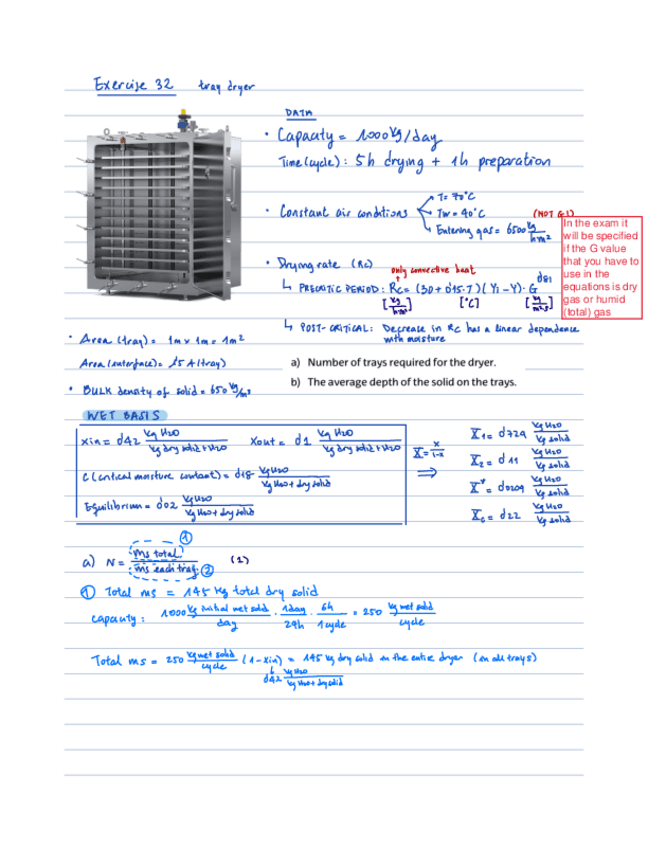 Exercise 32 tray dryer
DATA
• Capacity = 1000 kg/day
Time (cycle): 5h drying + 1h preparation
• Constant air conditions
T = 70°C
Tw = 40°C
(NOT G!)
Entering gas = 6500 kg/h m²
In the exam it
will be specified
if the G value
that you have to
use in the
equations is dry
gas or humid
(total) gas
• Drying rate (Rc)
only convective heat
↳ PRECRITIC PERIOD: Rc = (30 + 0'15·T)(Yi - Y)·G^0'81
[kg/hm²] [°C] [kg/m²·s]
↳ POST-CRITICAL: Decrease in Rc has a linear dependence
with moisture
• Area (tray) = 1m x 1m = 1m²
Area (interface) = 1'5 A (tray)
• BULK density of solid = 650 kg/m³
a) Number of trays required for the dryer.
b) The average depth of the solid on the trays.
WET BASIS
Xin = 0'42 kg H2O / kg dry solid + H2O Xout = 0'1 kg H2O / kg dry solid + H2O
C (critical moisture content) = 0'18 kg H2O / kg H2O + dry solid
Equilibrium = 0'02 kg H2O / kg H2O + dry solid
X̄ = x / 1-x
⇒
X̄1 = 0'724 kg H2O / kg solid
X̄2 = 0'11 kg H2O / kg solid
X̄* = 0'0204 kg H2O / kg solid
X̄c = 0'22 kg H2O / kg solid
a) N = ms total ① / ms each tray ② (1)
① Total ms = 145 kg total dry solid
Capacity: 1000 kg initial wet solid / day · 1 day / 24h · 6h / 1 cycle = 250 kg wet solid / cycle
Total ms = 250 kg wet solid / cycle (1 - Xin) = 145 kg dry solid in the entire dryer (in all trays)
0'42 kg H2O / kg H2O + dry solid